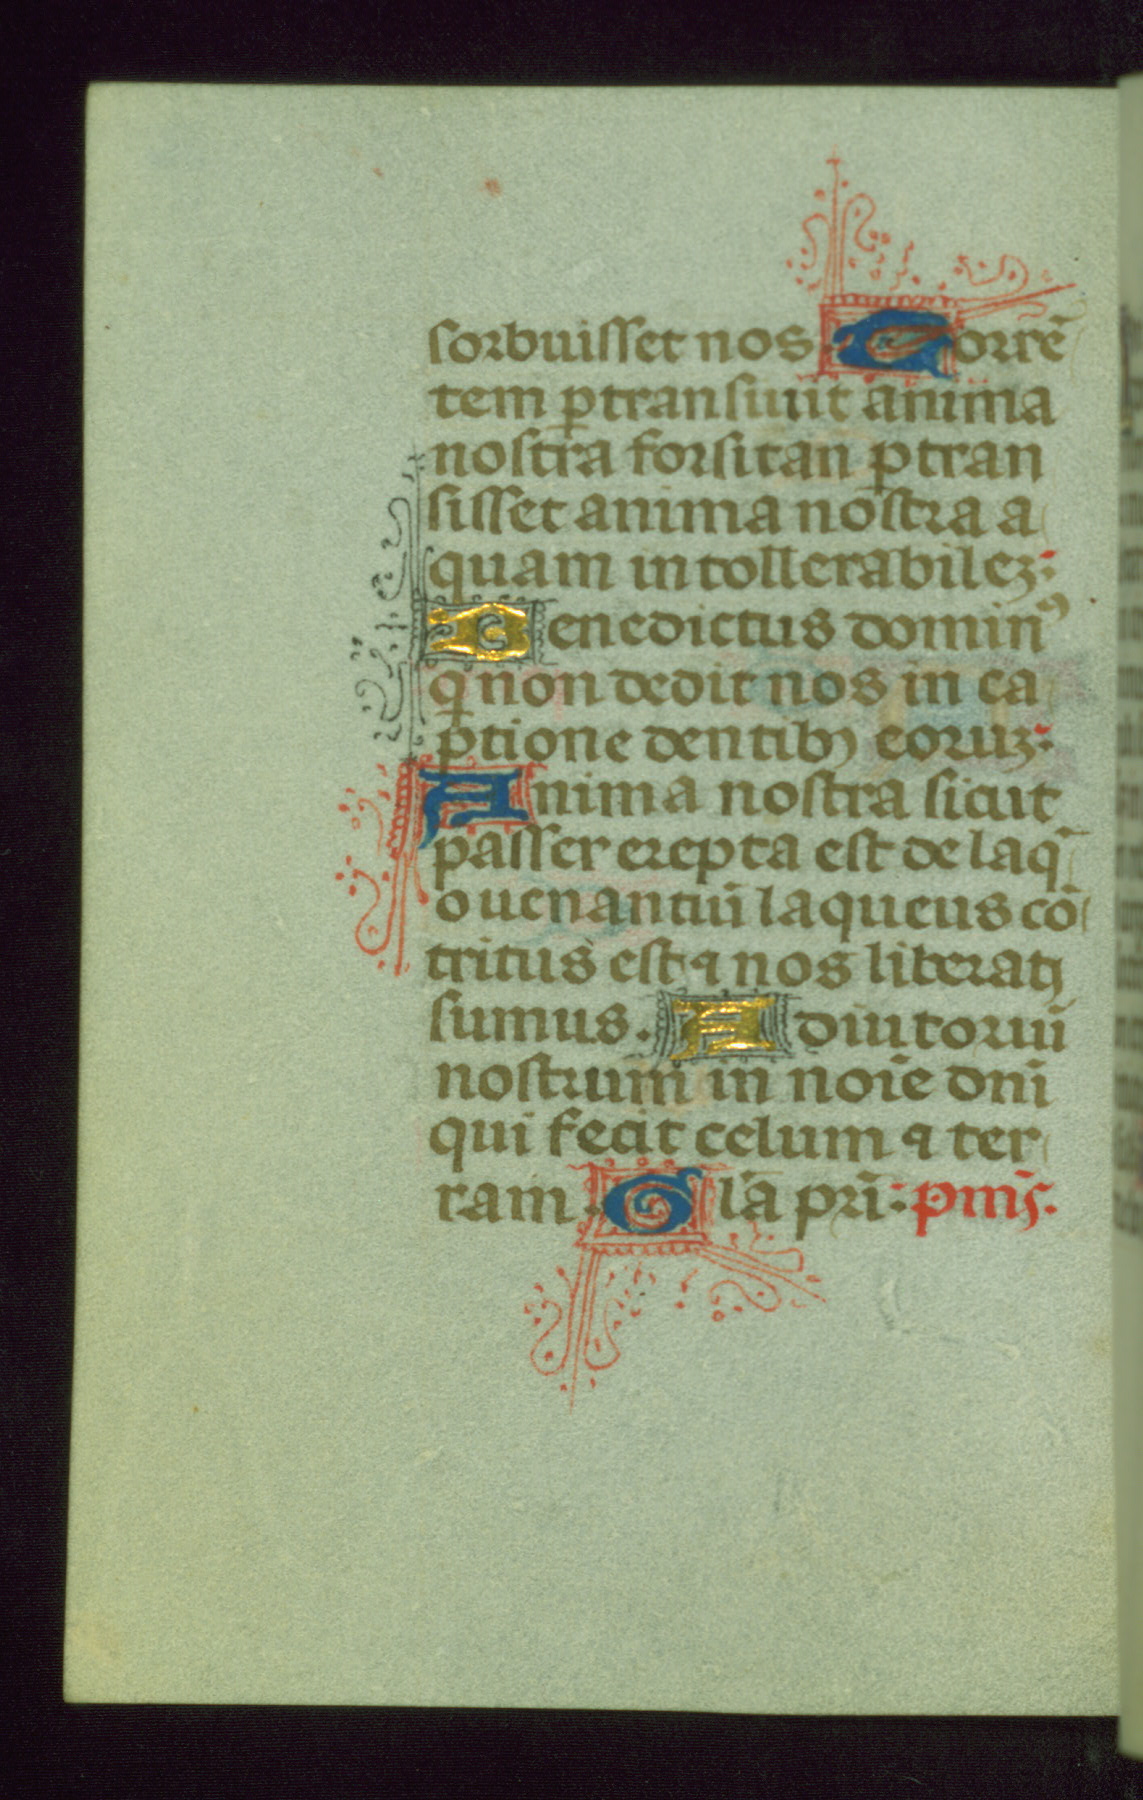 sorbuisset nos. Torrē
tem ꝑtransiuit anima
nostra forsitan ꝑtran
sisset anima nostra a
quam intollerabileꝫ:
Benedictus dominꝰ
q̇ non dedit nos in ca
ptione dentibꝰ eoruꝫ:
Anima nostra sicut
passer erepta est de laq̄
o uenantiū laqueus cō
tritus est ⁊ nos liberatꝭ
sumus. Adiutoriū
nostrum in noīe dnī
qui fecit celum ⁊ ter
ram. Glā pr̄i: pm̄s.